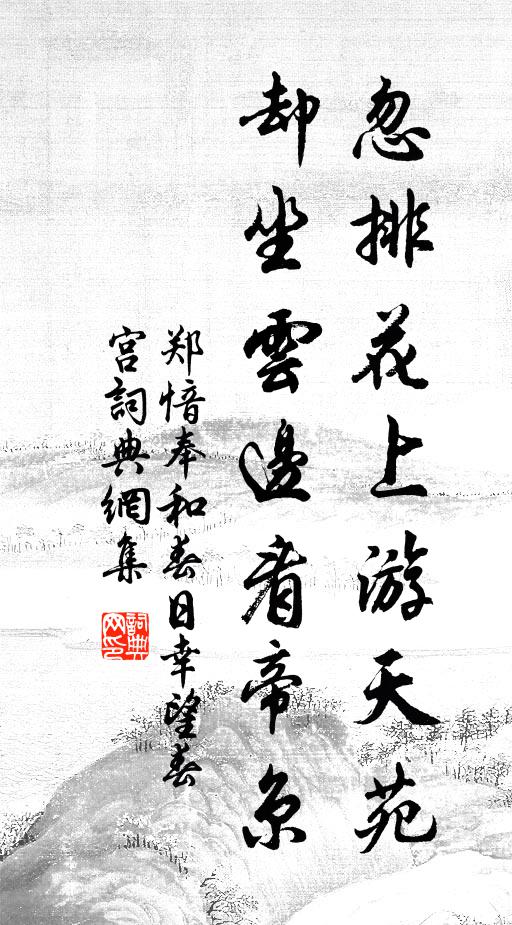 忽排花上游天苑
却坐雲邊看帝京
郑愔奉和春日幸望春
宫詞典網集
詞典网印